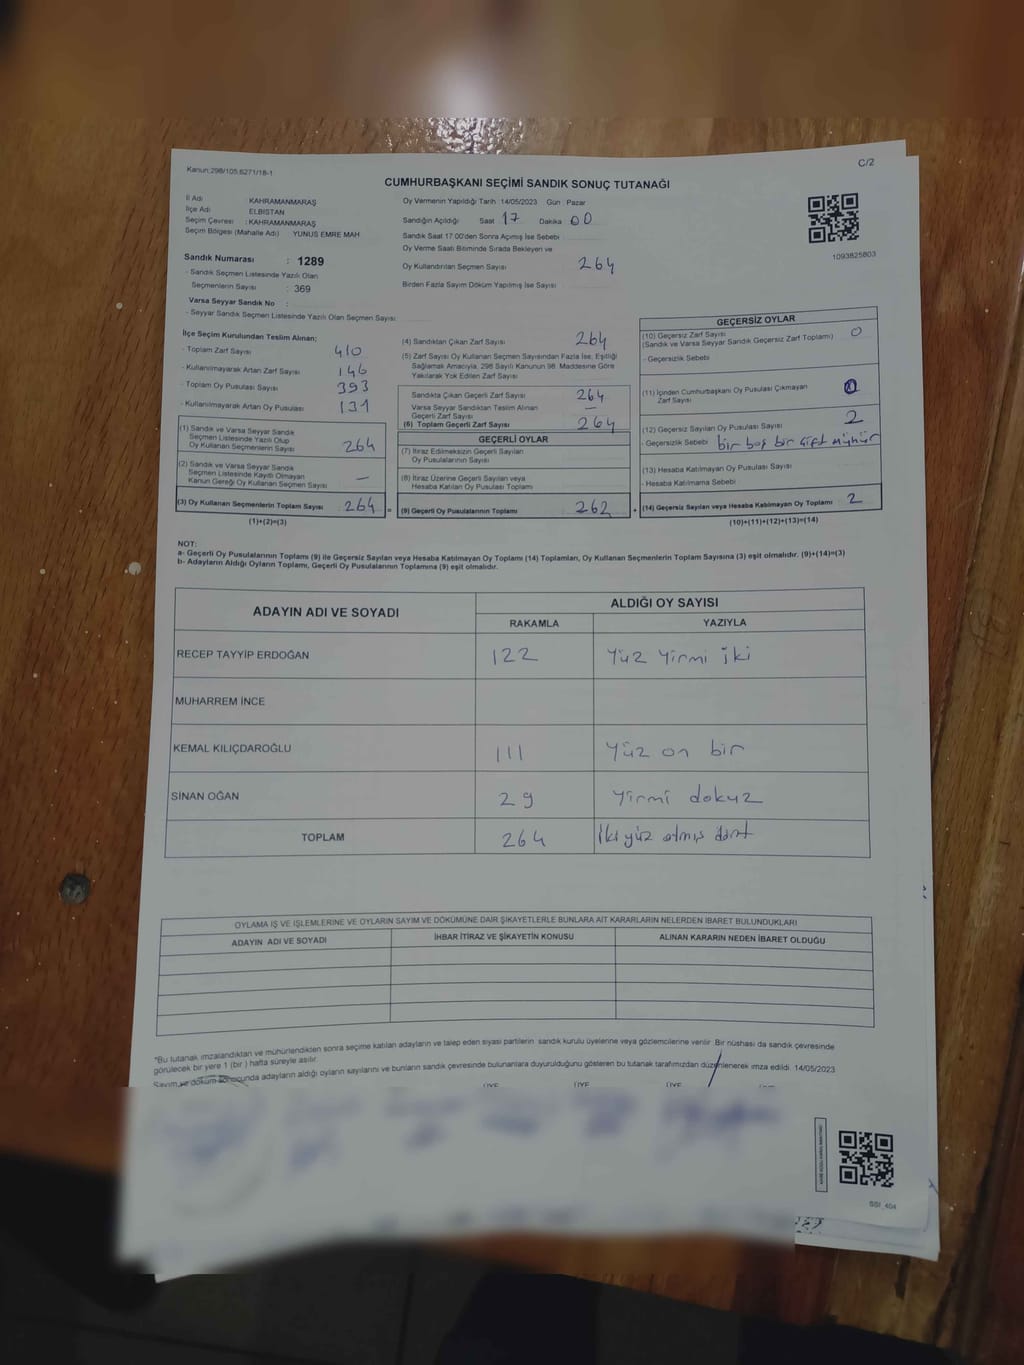 Kanun:298/105;6271/18-1
C/2
CUMHURBAŞKANI SEÇİMİ SANDIK SONUÇ TUTANAĞI
İl Adı : KAHRAMANMARAŞ
İlçe Adı : ELBİSTAN
Seçim Çevresi : KAHRAMANMARAŞ
Seçim Bölgesi (Mahalle Adı) : YUNUS EMRE MAH
Sandık Numarası : 1289
- Sandık Seçmen Listesinde Yazılı Olan
Seçmenlerin Sayısı : 369
Varsa Seyyar Sandık No :
- Seyyar Sandık Seçmen Listesinde Yazılı Olan Seçmen Sayısı:
Oy Vermenin Yapıldığı Tarih 14/05/2023 Gün : Pazar
Sandığın Açıldığı Saat 17 Dakika 00
Sandık Saat 17.00'den Sonra Açımış İse Sebebi :
Oy Verme Saati Bitiminde Sırada Bekleyen ve
Oy Kullandırılan Seçmen Sayısı 264
Birden Fazla Sayım Döküm Yapılmış İse Sayısı
1093825803
İlçe Seçim Kurulundan Teslim Alınan;
- Toplam Zarf Sayısı 410
- Kullanılmayarak Artan Zarf Sayısı 146
- Toplam Oy Pusulası Sayısı 393
- Kullanılmayarak Artan Oy Pusulası 131
(1) Sandık ve Varsa Seyyar Sandık
Seçmen Listesinde Yazılı Olup
Oy Kullanan Seçmenlerin Sayısı 264
(2) Sandık ve Varsa Seyyar Sandık
Seçmen Listesinde Kayıtlı Olmayan
Kanun Gereği Oy Kullanan Seçmen Sayısı —
(3) Oy Kullanan Seçmenlerin Toplam Sayısı 264 =
(1)+(2)=(3)
(4) Sandıktan Çıkan Zarf Sayısı 264
(5) Zarf Sayısı Oy Kullanan Seçmen Sayısından Fazla İse, Eşitliği
Sağlamak Amacıyla, 298 Sayılı Kanunun 98. Maddesine Göre
Yakılarak Yok Edilen Zarf Sayısı
Sandıkta Çıkan Geçerli Zarf Sayısı 264
Varsa Seyyar Sandıktan Teslim Alınan
Geçerli Zarf Sayısı —
(6) Toplam Geçerli Zarf Sayısı 264
GEÇERLİ OYLAR
(7) İtiraz Edilmeksizin Geçerli Sayılan
Oy Pusulalarının Sayısı
(8) İtiraz Üzerine Geçerli Sayılan veya
Hesaba Katılan Oy Pusulası Toplamı
(9) Geçerli Oy Pusulalarının Toplamı 262 +
GEÇERSİZ OYLAR
(10) Geçersiz Zarf Sayısı
(Sandık ve Varsa Seyyar Sandık Geçersiz Zarf Toplamı) 0
- Geçersizlik Sebebi
(11) İçinden Cumhurbaşkanı Oy Pusulası Çıkmayan
Zarf Sayısı
(12) Geçersiz Sayılan Oy Pusulası Sayısı 2
- Geçersizlik Sebebi bir boş bir çift mühür
(13) Hesaba Katılmayan Oy Pusulası Sayısı
- Hesaba Katılmama Sebebi
(14) Geçersiz Sayılan veya Hesaba Katılmayan Oy Toplamı 2
(10)+(11)+(12)+(13)=(14)
NOT:
a- Geçerli Oy Pusulalarının Toplamı (9) ile Geçersiz Sayılan veya Hesaba Katılmayan Oy Toplamı (14) Toplamları, Oy Kullanan Seçmenlerin Toplam Sayısına (3) eşit olmalıdır. (9)+(14)=(3)
b- Adayların Aldığı Oyların Toplamı, Geçerli Oy Pusulalarının Toplamına (9) eşit olmalıdır.
ADAYIN ADI VE SOYADI ALDIĞI OY SAYISI
RAKAMLA YAZIYLA
RECEP TAYYİP ERDOĞAN 122 Yüz Yirmi iki
MUHARREM İNCE
KEMAL KILIÇDAROĞLU 111 Yüz on bir
SİNAN OĞAN 29 Yirmi dokuz
TOPLAM 264 İki yüz atmış dört
OYLAMA İŞ VE İŞLEMLERİNE VE OYLARIN SAYIM VE DÖKÜMÜNE DAİR ŞİKAYETLERLE BUNLARA AİT KARARLARIN NELERDEN İBARET BULUNDUKLARI
ADAYIN ADI VE SOYADI İHBAR İTİRAZ VE ŞİKAYETİN KONUSU ALINAN KARARIN NEDEN İBARET OLDUĞU
*Bu tutanak imzalandıktan ve mühürlendikten sonra seçime katılan adayların ve talep eden siyasi partilerin sandık kurulu üyelerine veya gözlemcilerine verilir. Bir nüshası da sandık çevresinde
görülecek bir yere 1 (bir ) hafta süreyle asılır.
Sayım ve döküm sonucunda adayların aldığı oyların sayılarını ve bunların sandık çevresinde bulunanlara duyurulduğunu gösteren bu tutanak tarafımızdan düzenlenerek imza edildi. 14/05/2023
ÜYE ÜYE ÜYE
SSI_404